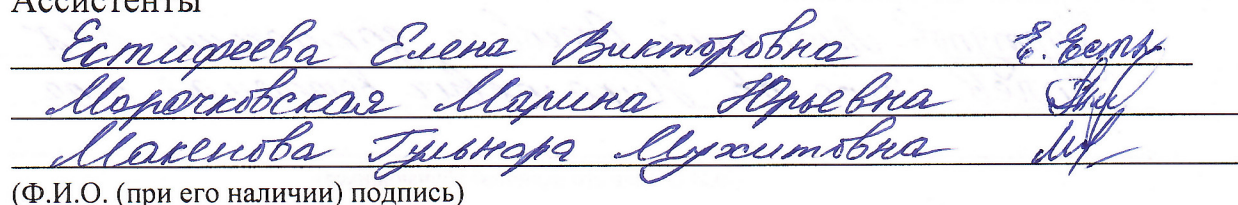 Ассистенты
Естифеева Елена Викторовна Е. Есть
Морочковская Марина Юрьевна
Макенова Гульнара Мухитовна
(Ф.И.О. (при его наличии) подпись)